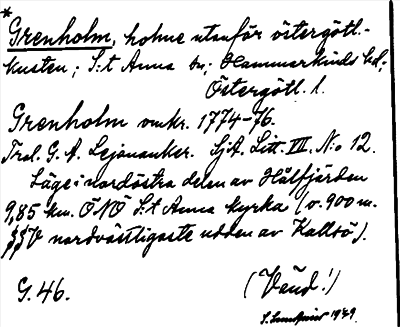 *
Grenholm, holme utanför östergötl.-
kusten; S:t Anna sn; Hammarkinds hd;
Östergötl. l.
Grenholm omkr. 1774-76.
Trol. G. A. Lejonanker. SjA. Litt. VII. No 12.
Läge i nordöstra delen av Hålfjärden
9,85 km. ÖNÖ S:t Anna kyrka (v. 900 m.
SSV nordvästligaste udden av Kallsö).
G. 46.
(Vänd!)
S. 1949